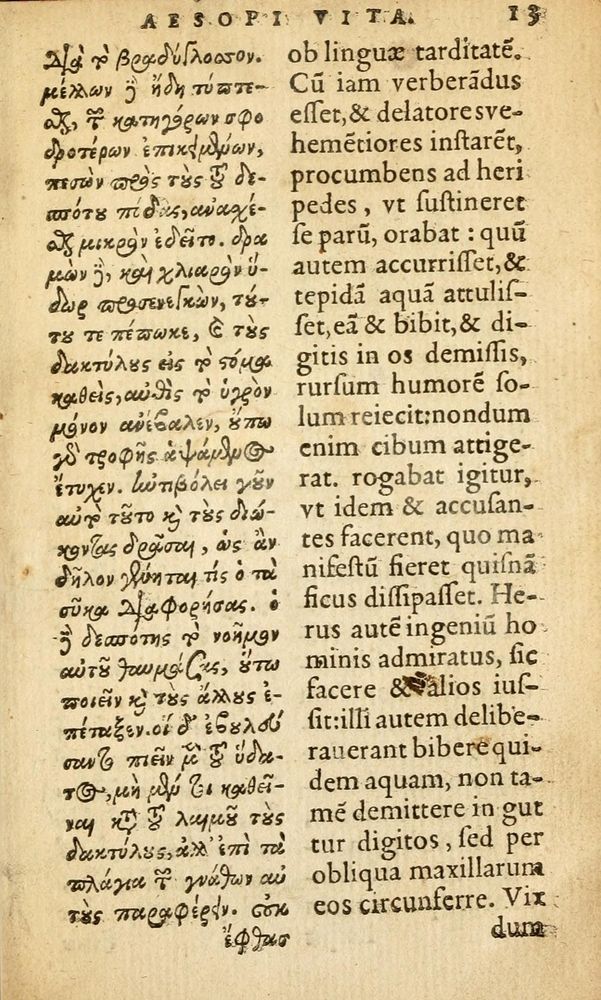 AESOPI VITA. 13
Διὰ τὸ βραδύγλωσσον.
μέλλων δὲ ἤδη τύπτε-
σθαι, τῶν κατηγόρων σφο
δροτέρων ἐπικειμένων,
πεσὼν πρὸς τοὺς τοῦ δε-
σπότου πόδας, ἀνασχέ-
σθαι μικρὸν ἐδεῖτο. δρα
μὼν δὲ, καὶ χλιαρὸν ὕ-
δωρ προσενεγκὼν, τού-
του τε πέπωκε, καὶ τοὺς
δακτύλους εἰς τὸ στόμα
καθεὶς, αὖθις τὸ ὑγρὸν
μόνον ἀνέβαλεν, οὔπω
γὰρ τροφῆς ἁψάμενος
ἔτυχεν. ἠντιβόλει γοῦν
αὐτὸ τοῦτο καὶ τοὺς διώ-
κοντας δρᾶσαι, ὡς ἂν
δῆλον γένηται τίς ὁ τὰ
σῦκα διαφορήσας. ὁ
δὲ δεσπότης τὸ νοῆμον
αὐτοῦ θαυμάσας, οὕτω
ποιεῖν καὶ τοὺς ἄλλους ἐ-
πέταξεν. οἱ δ' ἐβουλεύ
σαντο πιεῖν μὲν τοῦ ὕδα-
τος, μὴ μέν τοι καθεῖ-
ναι κατὰ τοῦ λαιμοῦ τοὺς
δακτύλους, ἀλλ' ἐπὶ τὰ
πλάγια τῶν γνάθων αὐ
τοὺς παραφέρειν. οὐκ
ἔφθασ
ob linguæ tarditatẽ.
Cũ iam verberãdus
eſſet, & delatores ve-
hemẽtiores inſtarẽt,
procumbens ad heri
pedes, vt ſuſtineret
ſe parũ, orabat : quũ
autem accurriſſet, &
tepidã aquã attuliſ-
ſet, eã & bibit, & di-
gitis in os demiſſis,
rurſum humorẽ ſo-
lum reiecit: nondum
enim cibum attige-
rat. rogabat igitur,
vt idem & accuſan-
tes facerent, quo ma
nifeſtũ fieret quiſnã
ficus diſſipaſſet. He-
rus autẽ ingeniũ ho
minis admiratus, ſic
facere & alios iuſ-
ſit: illi autem delibe-
rauerant bibere qui-
dem aquam, non ta-
mẽ demittere in gut
tur digitos, ſed per
obliqua maxillarum
eos circunferre. Vix
dum